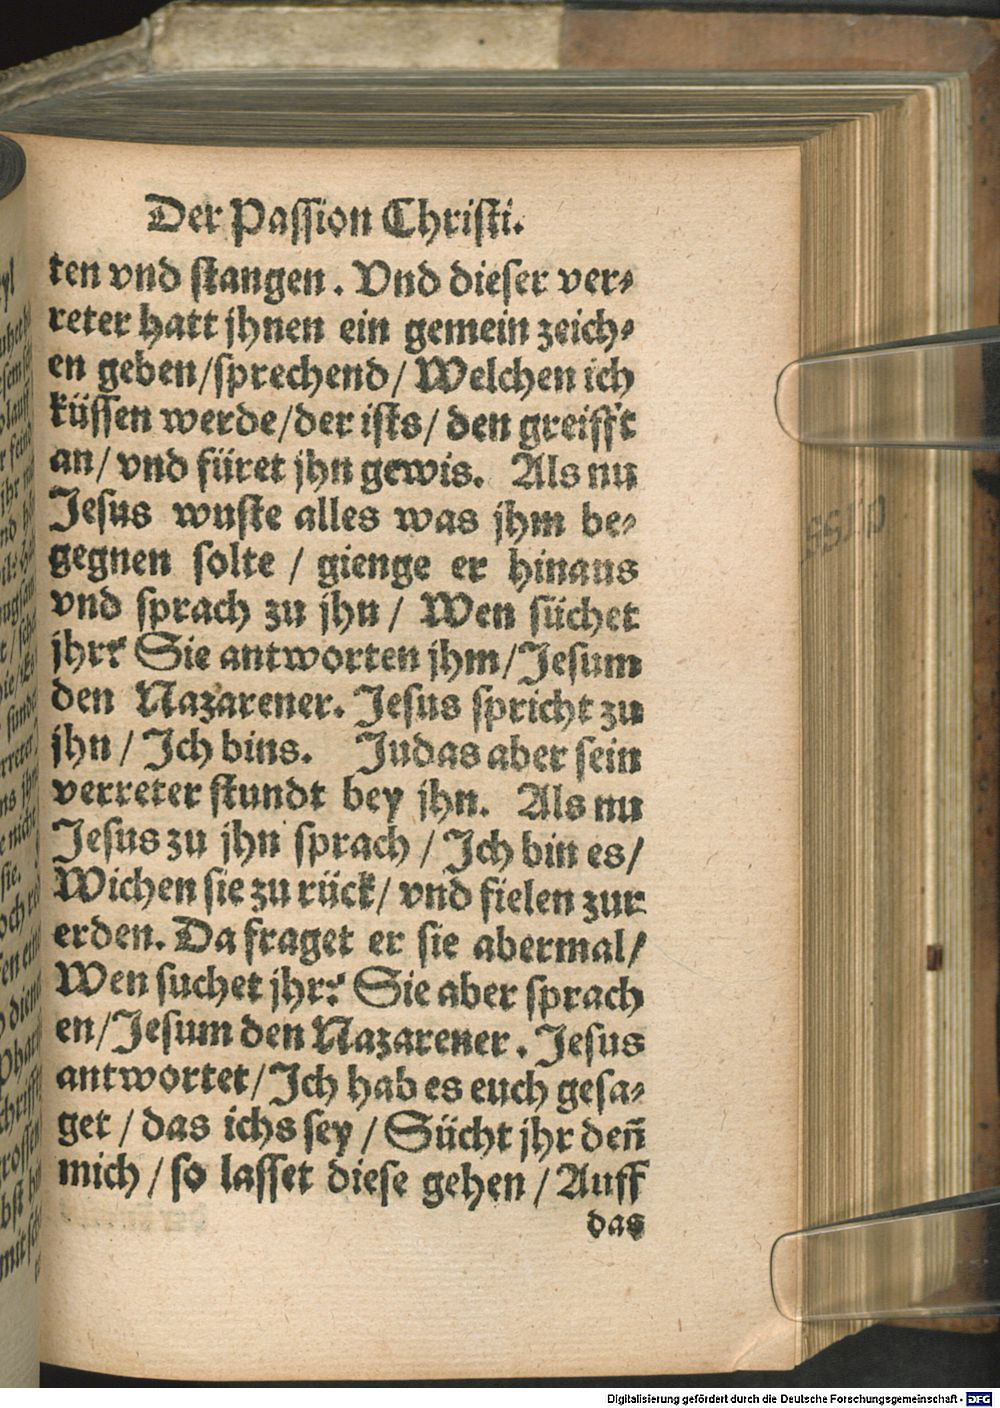 Der Passion Christi.
ten vnd stangen. Vnd dieser ver⸗
reter hatt jhnen ein gemein zeich⸗
en geben/sprechend/ Welchen ich
küssen werde/der ists/ den greifft
an/ vnd füret jhn gewis. Als nu
Jesus wuste alles was jhm be⸗
gegnen solte / gienge er hinaus
vnd sprach zu jhn/ Wen süchet
jhr? Sie antworten jhm/Jesum
den Nazarener. Jesus spricht zu
jhn/ Ich bins. Judas aber sein
verreter stundt bey jhn. Als nu
Jesus zu jhn sprach / Ich bin es/
Wichen sie zu rück/ vnd fielen zur
erden. Da fraget er sie abermal/
Wen suchet jhr? Sie aber sprach
en/Jesum den Nazarener. Jesus
antwortet/Ich hab es euch gesa⸗
get / das ichs sey / Sücht jhr deñ
mich / so lasset diese gehen / Auff
das
Digitalisierung gefördert durch die Deutsche Forschungsgemeinschaft - DFG